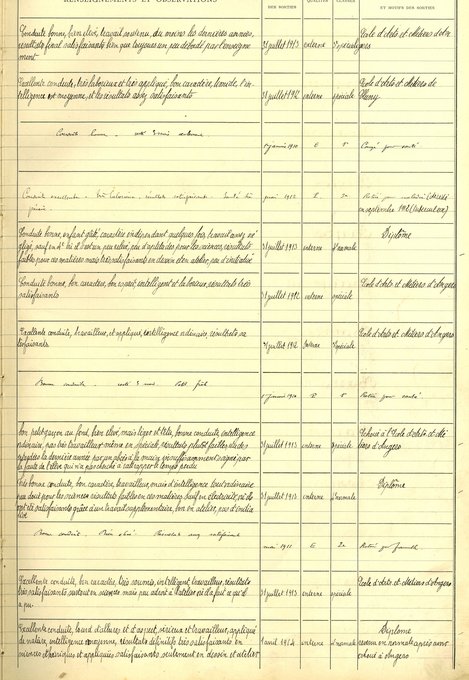 RENSEIGNEMENTS ET OBSERVATIONS
DES SORTIES
QUALITÉS
CLASSES
ET MOTIFS DES SORTIES
Conduite bonne, bien élevé, travail soutenu, du moins les dernières années,
résultat final satisfaisant bien que toujours un peu débordé par l'enseigne
ment
31 juillet 1913
externe
Ecole d'Arts et Métiers d'An
gers
Excellente conduite, très laborieux et très appliqué, bon caractère, timide, l'in-
telligence est moyenne, et les résultats assez satisfaisants
31 juillet 1912
interne
spéciale
Ecole d'Arts et Métiers de
Cluny
Conduite bonne
5 janvier 1910
E
Congé pour santé
Conduite excellente - Très laborieux, résultats satisfaisants
mai 1912
E
2e
Retiré pour maladie (décédé
en septembre 1912
Conduite bonne, enfant gâté, caractère indépendant quelquefois, travail assez né
gligé, sauf en
peu d'aptitudes pour les sciences, résultats
faibles pour ces matières mais très satisfaisants en dessin et en atelier
31 juillet 1913
interne
normale
Diplôme
Conduite bonne, bon caractère, bon esprit, intelligent et laborieux, résultats très
satisfaisants
31 juillet 1912
interne
spéciale
Ecole d'Arts et Métiers d'Angers
Excellente conduite, travailleur, et appliqué, intelligence ordinaire, résultats sa
tisfaisants
31 juillet 1912
interne
spéciale
Ecole d'Arts et Métiers d'Angers
Bonne conduite
5 janvier 1910
E
Retiré pour santé
bon petit garçon au fond, bien élevé, mais léger et têtu, bonne conduite, intelligence
ordinaire, pas très travailleur même en spéciale, résultats plutôt faibles
la dernière année par un abcès à la main
faute de l'élève qui n'a pas cherché à rattraper le temps perdu
31 juillet 1913
interne
spéciale
Echoué à l'Ecole d'Arts et Mé
tiers d'Angers
Très bonne conduite, bon caractère, travailleur, mais d'intelligence tout ordinaire
surtout pour les sciences résultats faibles en ces matières sauf en électricité, où ils
ont été satisfaisants grâce à un travail supplémentaire, bon en atelier, peu d'initia
tive
31 juillet 1913
interne
normale
Diplôme
Bonne conduite. Bien élevé. Résultats assez satisfaisants
mai 1911
E
2e
Retiré par famille
Excellente conduite, bon caractère, très soumis, intelligent, travailleur, résultats
très satisfaisants surtout en sciences mais peu adroit à l'atelier où il a fait ce qu'il
a pu.
31 juillet 1913
interne
spéciale
Ecole d'Arts et Métiers d'Angers
Excellente conduite, lourd d'allures et d'aspect, sérieux et travailleur, appliqué
de nature, intelligence moyenne, résultats définitifs très satisfaisants en
sciences théoriques et appliquées satisfaisants seulement en dessin et atelier
1 avril 1914
interne
normale
Diplôme
revenu en normale après avoir
échoué à Angers